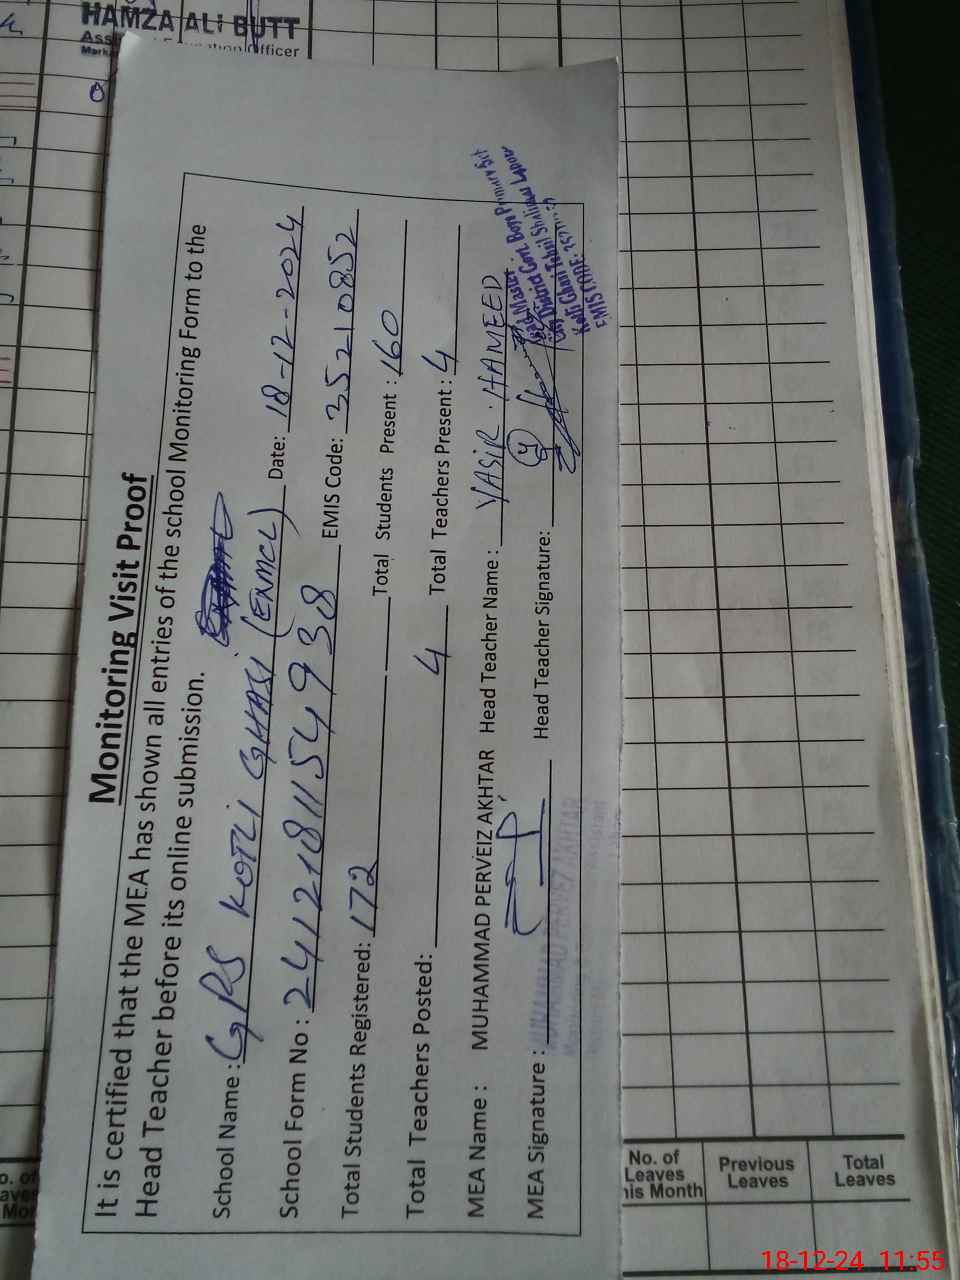 HAMZA ALI BUTT
Officer
Monitoring Visit Proof
It is certified that the MEA has shown all entries of the school Monitoring Form to the
Head Teacher before its online submission.
School Name : GPS KOTLI GHASI (ENMCL) Date: 18-12-2024
School Form No : 241218115493 8 EMIS Code: 35210852
Total Students Registered: 172 Total Students Present : 160
Total Teachers Posted: 4 Total Teachers Present : 4
MEA Name : MUHAMMAD PERVEIZ AKHTAR Head Teacher Name : YASIR . HAMEED
MEA Signature : Head Teacher Signature:
Head Master
City District Govt. Boys Primary
Kotli Ghasi Tehsil Shalimar Lahore
EMIS CODE:
MUHAMMAD PERVEZ AKHTAR
No. of
Leaves
his Month
Previous
Leaves
Total
Leaves
18-12-24 11:55